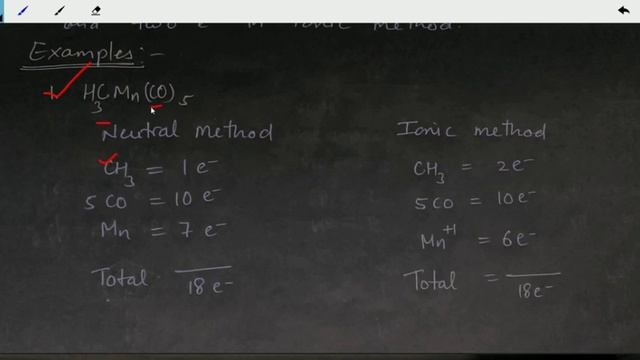 and two e⁻ in ionic method.
Examples:-
1. H₃C Mn(CO)₅
Neutral method
CH₃ = 1e⁻
5CO = 10e⁻
Mn = 7e⁻
Total 18e⁻
Ionic method
CH₃ = 2e⁻
5CO = 10e⁻
Mn⁺¹ = 6e⁻
Total = 18e⁻